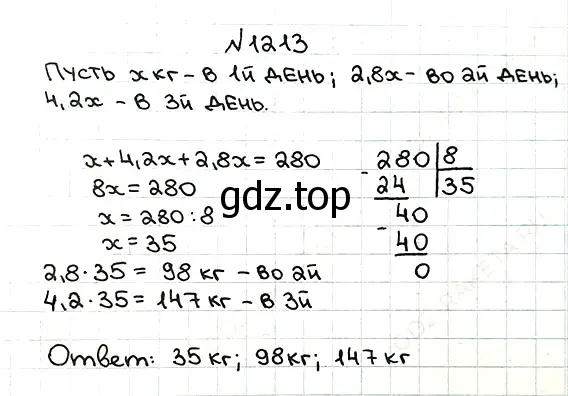 №1213
Пусть x кг - в 1й день; 2,8x - во 2й день;
4,2x - в 3й день.
x + 4,2x + 2,8x = 280
8x = 280
x = 280 : 8
x = 35
280 | 8
- 24 | 35
40
- 40
0
2,8 · 35 = 98 кг - во 2й
4,2 · 35 = 147 кг - в 3й
Ответ: 35 кг; 98 кг; 147 кг
gdz.top